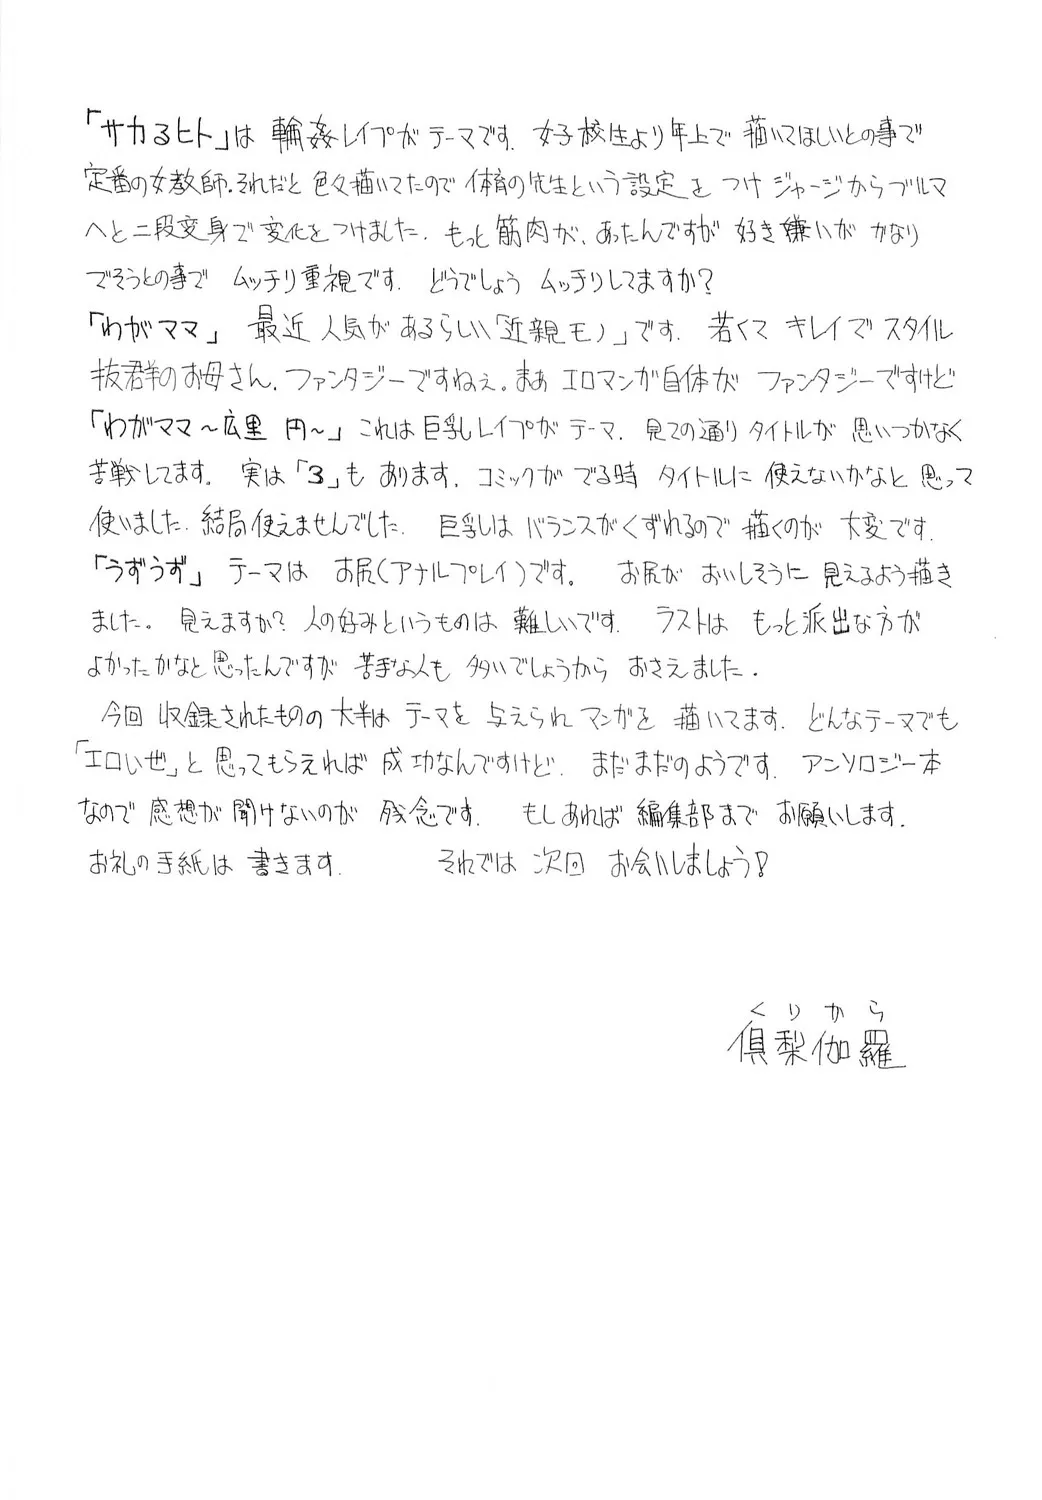 「サカるヒト」は 輪姦レイプがテーマです. 女子校生より年上で 描いてほしいとの事で
定番の女教師.それだと 色々描いてたので 体育の先生という設定を つけ ジャージからブルマ
へと二段変身で変化をつけました. もっと筋肉が、あったんですが 好き嫌いが かなり
でそうとの事で ムッチリ重視です. どうでしょう ムッチリしてますか?
「わがママ」 最近 人気が あるらしい「近親モノ」です. 若くて キレイで スタイル
抜群のお母さん. ファンタジーですねぇ。まぁ エロマンガ自体が ファンタジーですけど
「わがママ～広里 円～」 これは 巨乳レイプが テーマ. 見ての通り タイトルが 思いつかなく
苦戦してます。 実は「3」も あります. コミックが でる時 タイトルに 使えないかなと 思って
使いました. 結局使えませんでした. 巨乳は バランスがくずれるので 描くのが 大変です.
「うずうず」 テーマは お尻(アナルプレイ)です。 お尻が おいしそうに 見えるよう描き
ました。 見えますか? 人の好みというものは 難しいです. ラストは もっと派出な方が
よかったかなと思ったんですが 苦手な人も 多いでしょうから おさえました.
今回 収録されたものの 大半は テーマを 与えられ マンガを 描いてます. どんなテーマでも
「エロいぜ」と 思ってもらえれば 成功なんですけど. まだまだのようです. アンソロジー本
なので 感想が 聞けないのが 残念です. もしあれば 編集部まで お願いします.
お礼の手紙は 書きます. それでは 次回 お会いしましょう!
くりから
倶梨伽羅